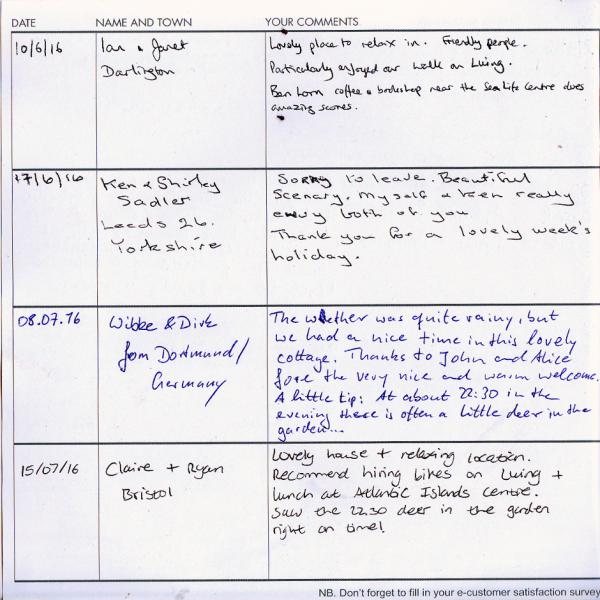 DATE NAME AND TOWN YOUR COMMENTS
10/6/16
Ian & Janet
Darlington
Lovely place to relax in. Friendly people.
Particularly enjoyed our walk on Luing.
Ben Lorn coffee & bookshop near the Sea Life Centre does
amazing scones.
17/6/16
Ken & Shirley
Sadler
Leeds 26.
Yorkshire
Sorry to leave. Beautiful
Scenary. Myself & Ken really
envy both of you
Thank you for a lovely week's
holiday.
08.07.16
Wibke & Dirk
from Dortmund/
Germany
The whether was quite rainy, but
we had a nice time in this lovely
cottage. Thanks to John and Alice
fore the very nice and warm welcome.
A little tip: At about 22:30 in the
evening there is often a little deer in the
garden...
15/07/16
Claire + Ryan
Bristol
Lovely house + relaxing location.
Recommend hiring bikes on Luing +
lunch at Atlantic Islands Centre.
Saw the 22.30 deer in the garden
right on time!
NB. Don't forget to fill in your e-customer satisfaction survey